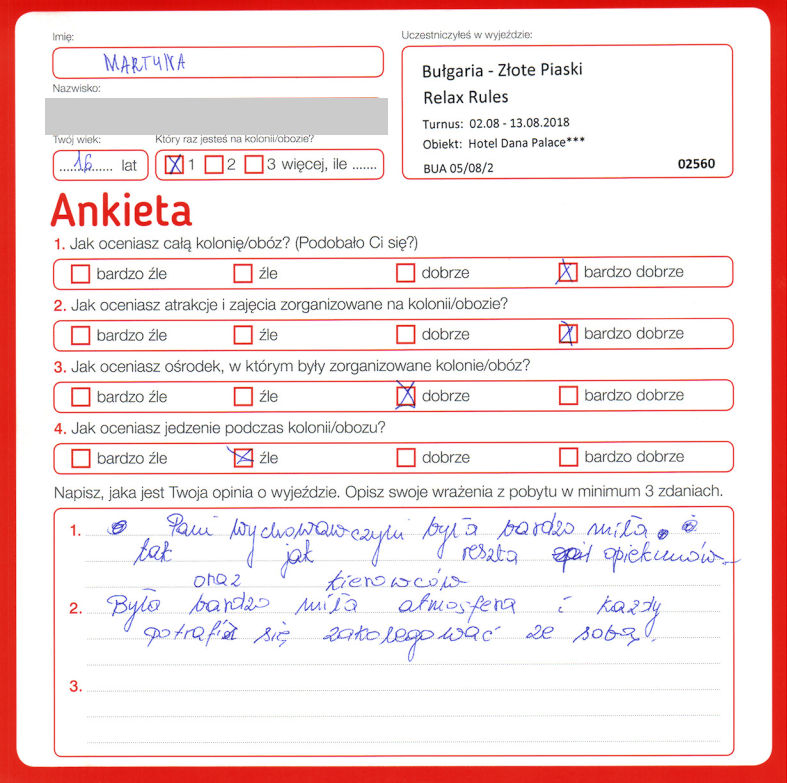 Imię:
MARTYNA
Nazwisko:
Twój wiek:
16 lat
Który raz jesteś na kolonii/obozie?
1 2 3 więcej, ile .......
Uczestniczyłeś w wyjeździe:
Bułgaria - Złote Piaski
Relax Rules
Turnus: 02.08 - 13.08.2018
Obiekt: Hotel Dana Palace***
BUA 05/08/2 02560
Ankieta
1. Jak oceniasz całą kolonię/obóz? (Podobało Ci się?)
bardzo źle źle dobrze bardzo dobrze
2. Jak oceniasz atrakcje i zajęcia zorganizowane na kolonii/obozie?
bardzo źle źle dobrze bardzo dobrze
3. Jak oceniasz ośrodek, w którym były zorganizowane kolonie/obóz?
bardzo źle źle dobrze bardzo dobrze
4. Jak oceniasz jedzenie podczas kolonii/obozu?
bardzo źle źle dobrze bardzo dobrze
Napisz, jaka jest Twoja opinia o wyjeździe. Opisz swoje wrażenia z pobytu w minimum 3 zdaniach.
1. Pani wychowawczyni była bardzo miła,
tak jak reszta opiekunów
oraz kierowców
2. Była bardzo miła atmosfera i każdy
potrafił się zakolegować ze sobą.
3.